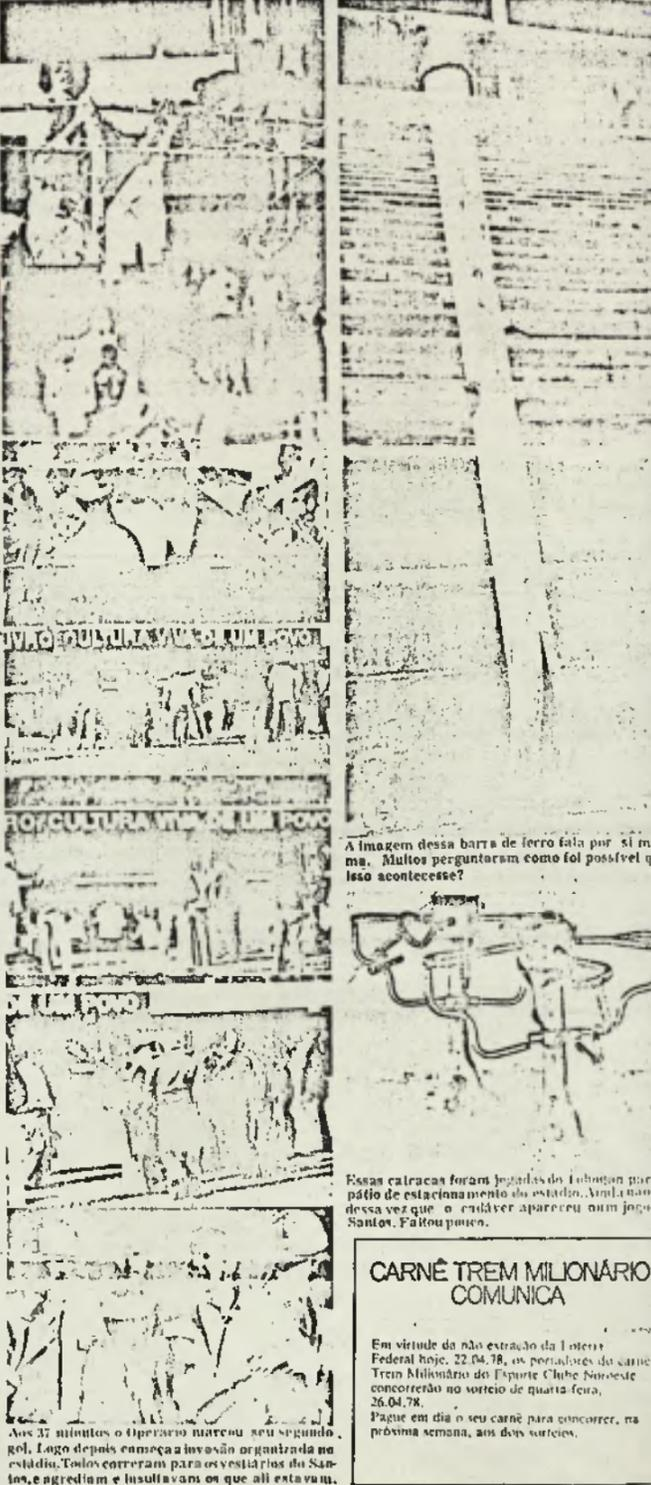 LIVRO: CULTURA VIVA DE UM POVO
RO: CULTURA VIVA DE UM POVO
DE UM POVO
Aos 37 minutos o Operário marcou seu segundo
gol. Logo depois começa a invasão organizada no
estádio. Todos correram para os vestiários do San-
tos, e agrediam e insultavam os que ali estavam.
A imagem dessa barra de ferro fala por si m
ma. Muitos perguntaram como foi possível q
isso acontecesse?
Essas catracas foram jogadas do Tobogan par
pátio de estacionamento do estádio. Ainda não
dessa vez que o cadáver apareceu num jogo
Santos. Faltou pouco.
CARNÊ TREM MILIONÁRIO
COMUNICA
Em virtude da não extração da Loteria
Federal hoje, 22.04.78, os portadores do carnê
Trem Milionário do Esporte Clube Noroeste
concorrerão no sorteio de quarta-feira,
26.04.78.
Pague em dia o seu carnê para concorrer, na
próxima semana, aos dois sorteios.